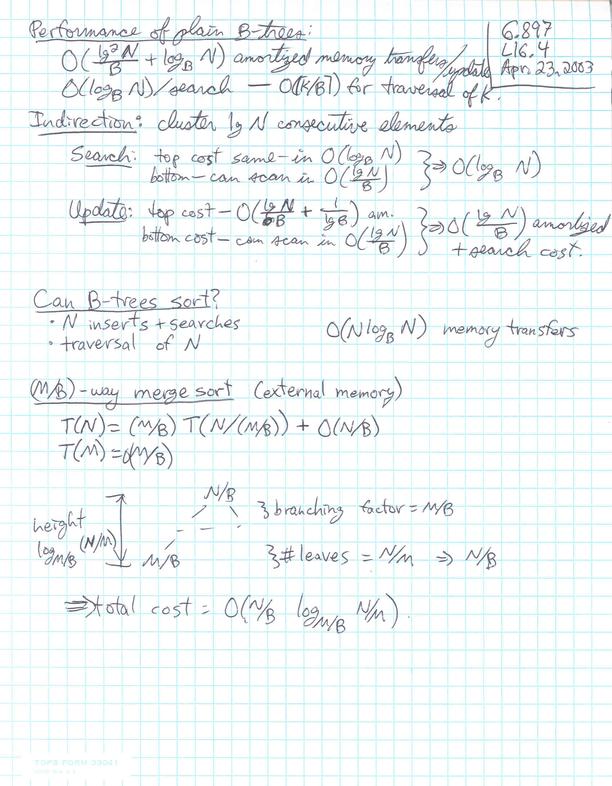 Performance of plain B-trees:
6.897
L16.4
Apr. 23, 2003
O(lg²N/B + log_B N) amortized memory transfers/update
O(log_B N)/search — O(⌈K/B⌉) for traversal of K.
Indirection: cluster lg N consecutive elements
Search: top cost same - in O(log_B N)
bottom - can scan in O(lg N/B) } ⇒ O(log_B N)
Update: top cost - O(lg N/B + 1/lg B) am.
bottom cost - can scan in O(lg N/B) } ⇒ O(lg N/B) amortized
+ search cost.
Can B-trees sort?
• N inserts + searches O(N log_B N) memory transfers
• traversal of N
(M/B)-way merge sort (external memory)
T(N) = (M/B) T(N/(M/B)) + O(N/B)
T(M) = O(M/B)
N/B
} branching factor = M/B
height
log_{M/B} (N/M)
M/B } # leaves = N/M ⇒ N/B
⇒ total cost = O(N/B log_{M/B} N/M).